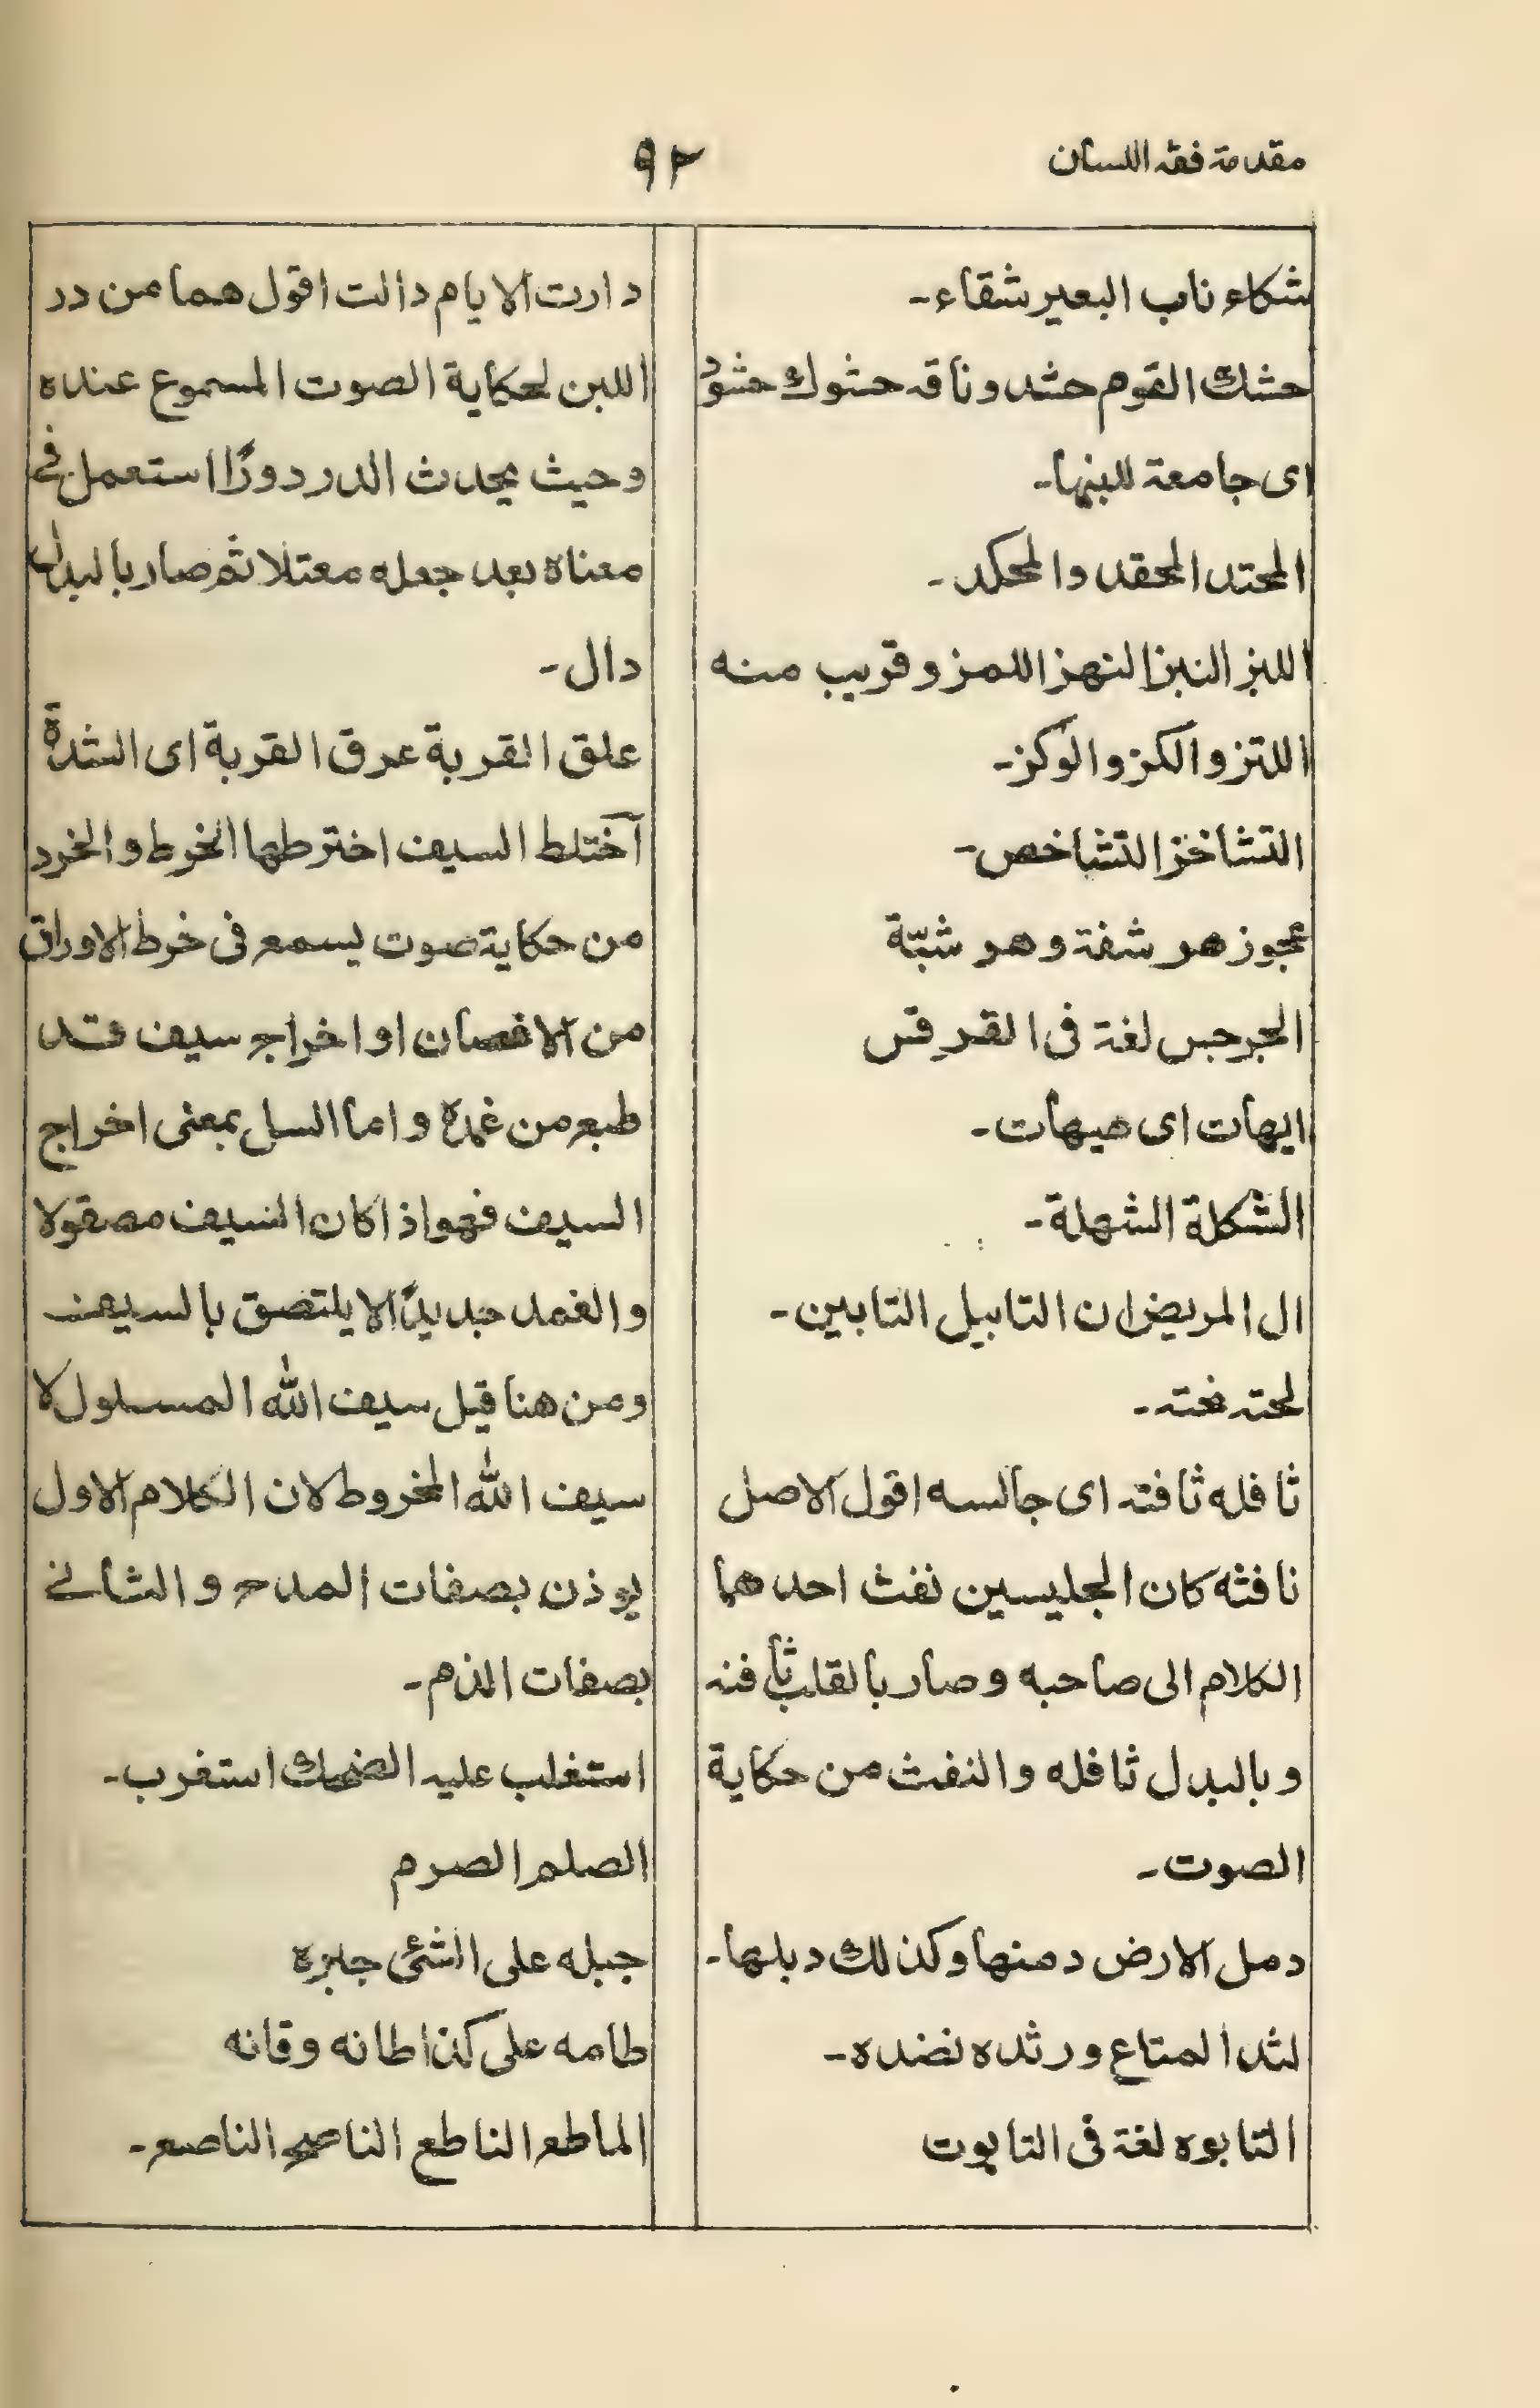 مقدمة فقه اللسان
٩٢
شكاء ناب البعير شقاء۔
حشك القوم حشد وناقه حشوك حشود
اى جامعة للبنها۔
المحتد المحقد والمحكد۔
اللبز النبز النهز اللمز وقريب منه
اللتز والكز والوكز۔
التشاخز التشاخص۔
عجوز هر شفة وهر شبّة
الجرجس لغة فى القرقس
ايهات اى هيهات۔
الشكلة الشهلة۔
ال المريض ان التابيل التابين۔
لحته نحته۔
ثافله ثافنه اى جالسه اقول الاصل
نافثه كان الجليسين نفث احدهما
الكلام الى صاحبه وصار بالقلب ثأفنه
وبالبدل ثافله والنفث من حكاية
الصوت۔
دمل الارض دمنها وكذلك دبلها۔
لثد المتاع ورثده نضده۔
التابوه لغة فى التابوت
دارت الايام دالت اقول هما من در
اللبن لحكاية الصوت المسموع عنده
وحيث يحدث الدر دورًا استعمل فے
معناه بعد جعله معتلا ثم صار بالبدل
دال۔
علق القربة عرق القربة اى الشدة
آختلط السيف اخترطها الخرط والخرد
من حكاية صوت يسمع فى خرط الاوراق
من الاغصان او اخراج سيف قد
طبع من غمده واما السل بمعنى اخراج
السيف فهو اذا كان السيف مصقولا
والغمد جديدًا لا يلتصق بالسيف
ومن هنا قيل سيف الله المسلول لا
سيف الله المخروط لان الكلام الاول
يوذن بصفات المدح والثانے
بصفات الذم۔
استغلب عليه الضحك استغرب۔
الصلم الصرم
جبله على الشئ جبره
طامه على كذا طانه وقانه
الماطع الناطع الناصح الناصع۔